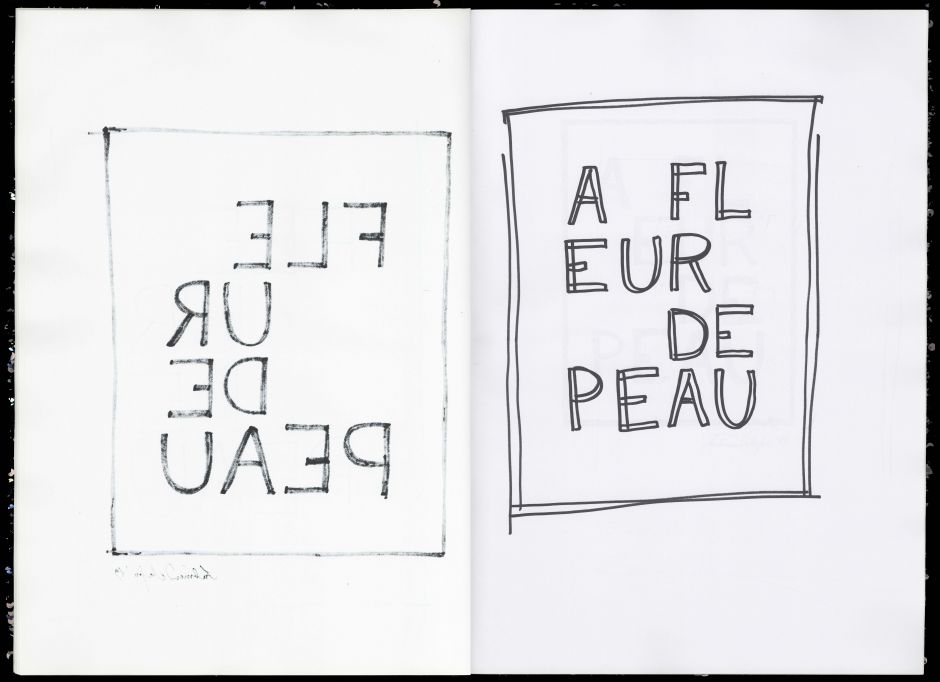 FLE
UR
DE
PEAU
A FL
EUR
DE
PEAU